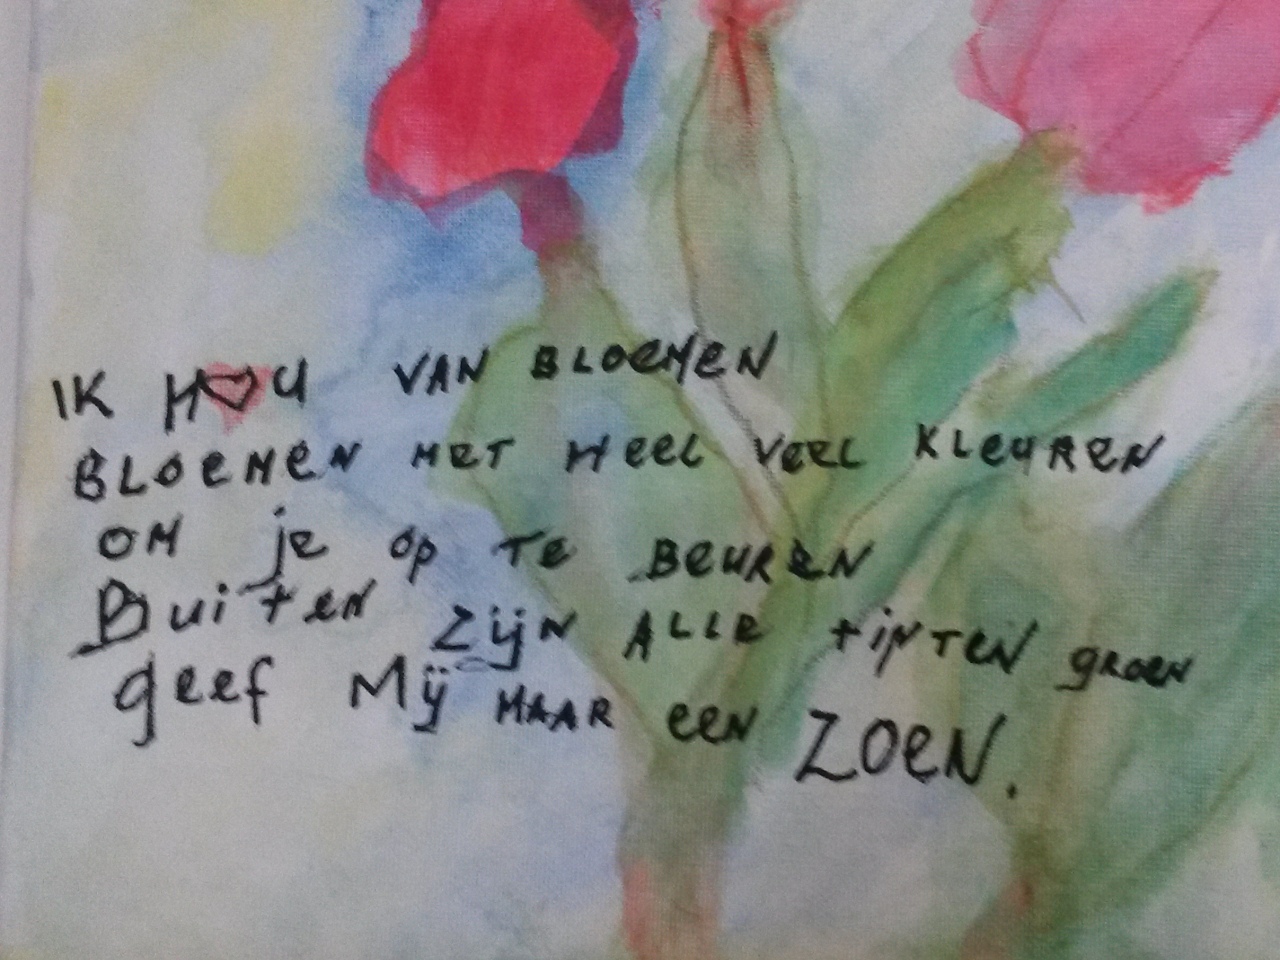 IK H♡U VAN BLOEMEN
BLOEMEN MET HEEL VEEL KLEUREN
OM je op TE BEUREN
Buiten ZijN ALLE tinTeN groen
geef Mij MAAR een ZOeN.